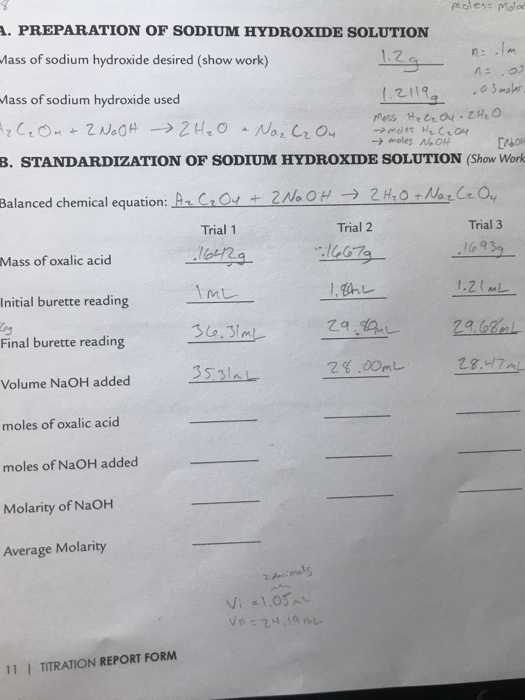 moles = Molar
A. PREPARATION OF SODIUM HYDROXIDE SOLUTION
Mass of sodium hydroxide desired (show work) 1.2g n= .1m
n= .03
Mass of sodium hydroxide used 1.2119g .03 moles
Mass H2C2O4 · 2H2O
→ moles H2C2O4
→ moles NaOH [NaOH
H2C2O4 + 2 NaOH → 2H2O + Na2C2O4
B. STANDARDIZATION OF SODIUM HYDROXIDE SOLUTION (Show Work
Balanced chemical equation: H2C2O4 + 2NaOH → 2H2O + Na2C2O4
Trial 1 Trial 2 Trial 3
Mass of oxalic acid .1642g .1667g .1693g
Initial burette reading 1mL 1.8mL 1.21mL
Final burette reading 36.31mL 29.80mL 29.68mL
Volume NaOH added 35.31mL 28.00mL 28.47mL
moles of oxalic acid
moles of NaOH added
Molarity of NaOH
Average Molarity
2 decimals
Vi = 1.05mL
VF = 24.19mL
11 | TITRATION REPORT FORM